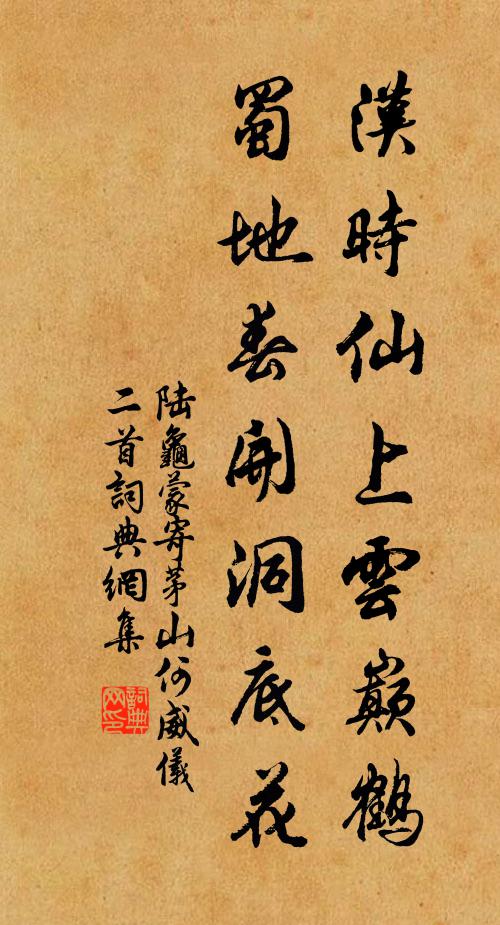 漢時仙上雲巔鶴
蜀地春開洞底花
陆龜蒙寄茅山何威儀
二首詞典網集
詞典
网印